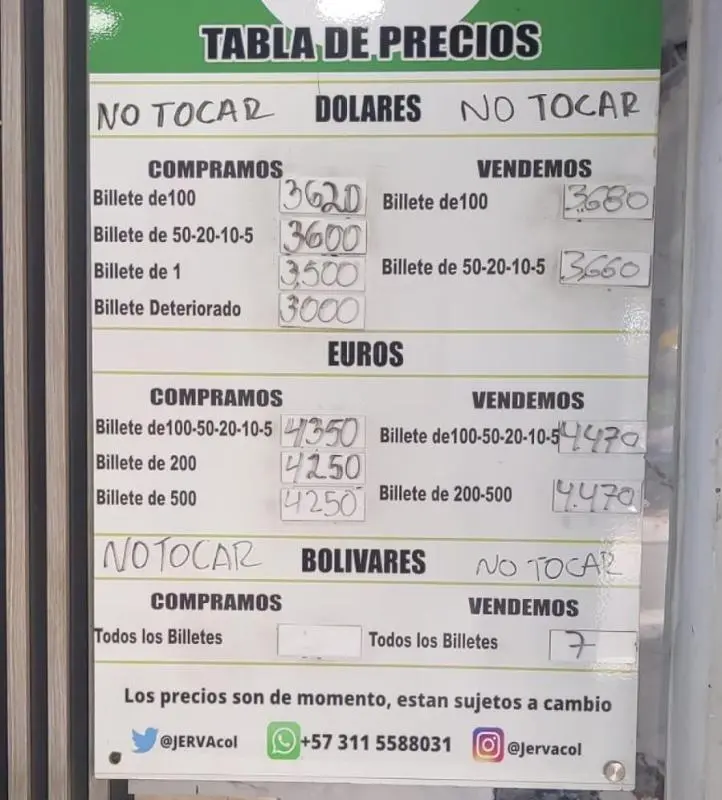 TABLA DE PRECIOS
NO TOCAR DOLARES NO TOCAR
COMPRAMOS VENDEMOS
Billete de100 3620 Billete de100 3.680
Billete de 50-20-10-5 3600
Billete de 1 3,500 Billete de 50-20-10-5 3.660
Billete Deteriorado 3000
EUROS
COMPRAMOS VENDEMOS
Billete de100-50-20-10-5 4350 Billete de100-50-20-10-5 4.470
Billete de 200 4250
Billete de 500 4250 Billete de 200-500 4.470
NO TOCAR BOLIVARES NO TOCAR
COMPRAMOS VENDEMOS
Todos los Billetes Todos los Billetes 7
Los precios son de momento, estan sujetos a cambio
@JERVAcol +57 311 5588031 @Jervacol